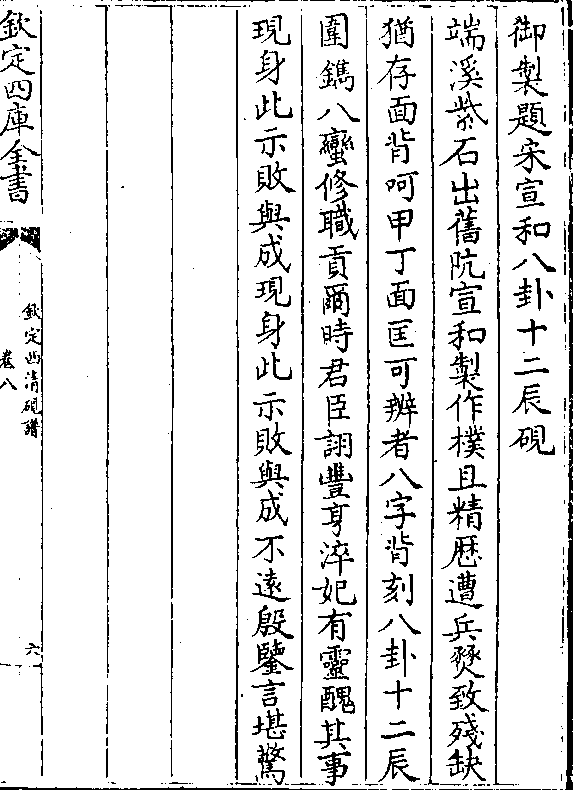 御製題宋宣和八卦十二辰硯
端溪紫石出舊阬宣和製作樸且精歴遭兵燹致殘缺
猶存面背呵甲丁面匡可辨者八字背刻八卦十二辰
圍鐫八蠻修職貢爾時君臣詡豐亨淬妃有靈醜其事
現身此示敗與成現身此示敗與成不遠殷鑒言堪驚
欽定四庫全書
欽定西清硯譜
卷八
六